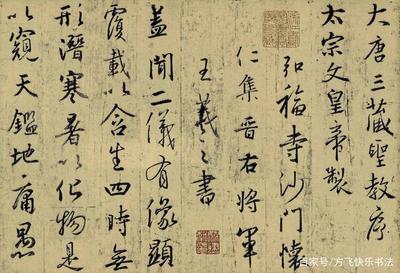 大唐三藏聖教序
太宗文皇帝製
弘福寺沙門懷
仁集晉右將軍
王羲之書
蓋聞二儀有像顯
覆載以含生四時無
形潛寒暑以化物是
以窺天鑑地庸愚
百家号/方飞快乐书法